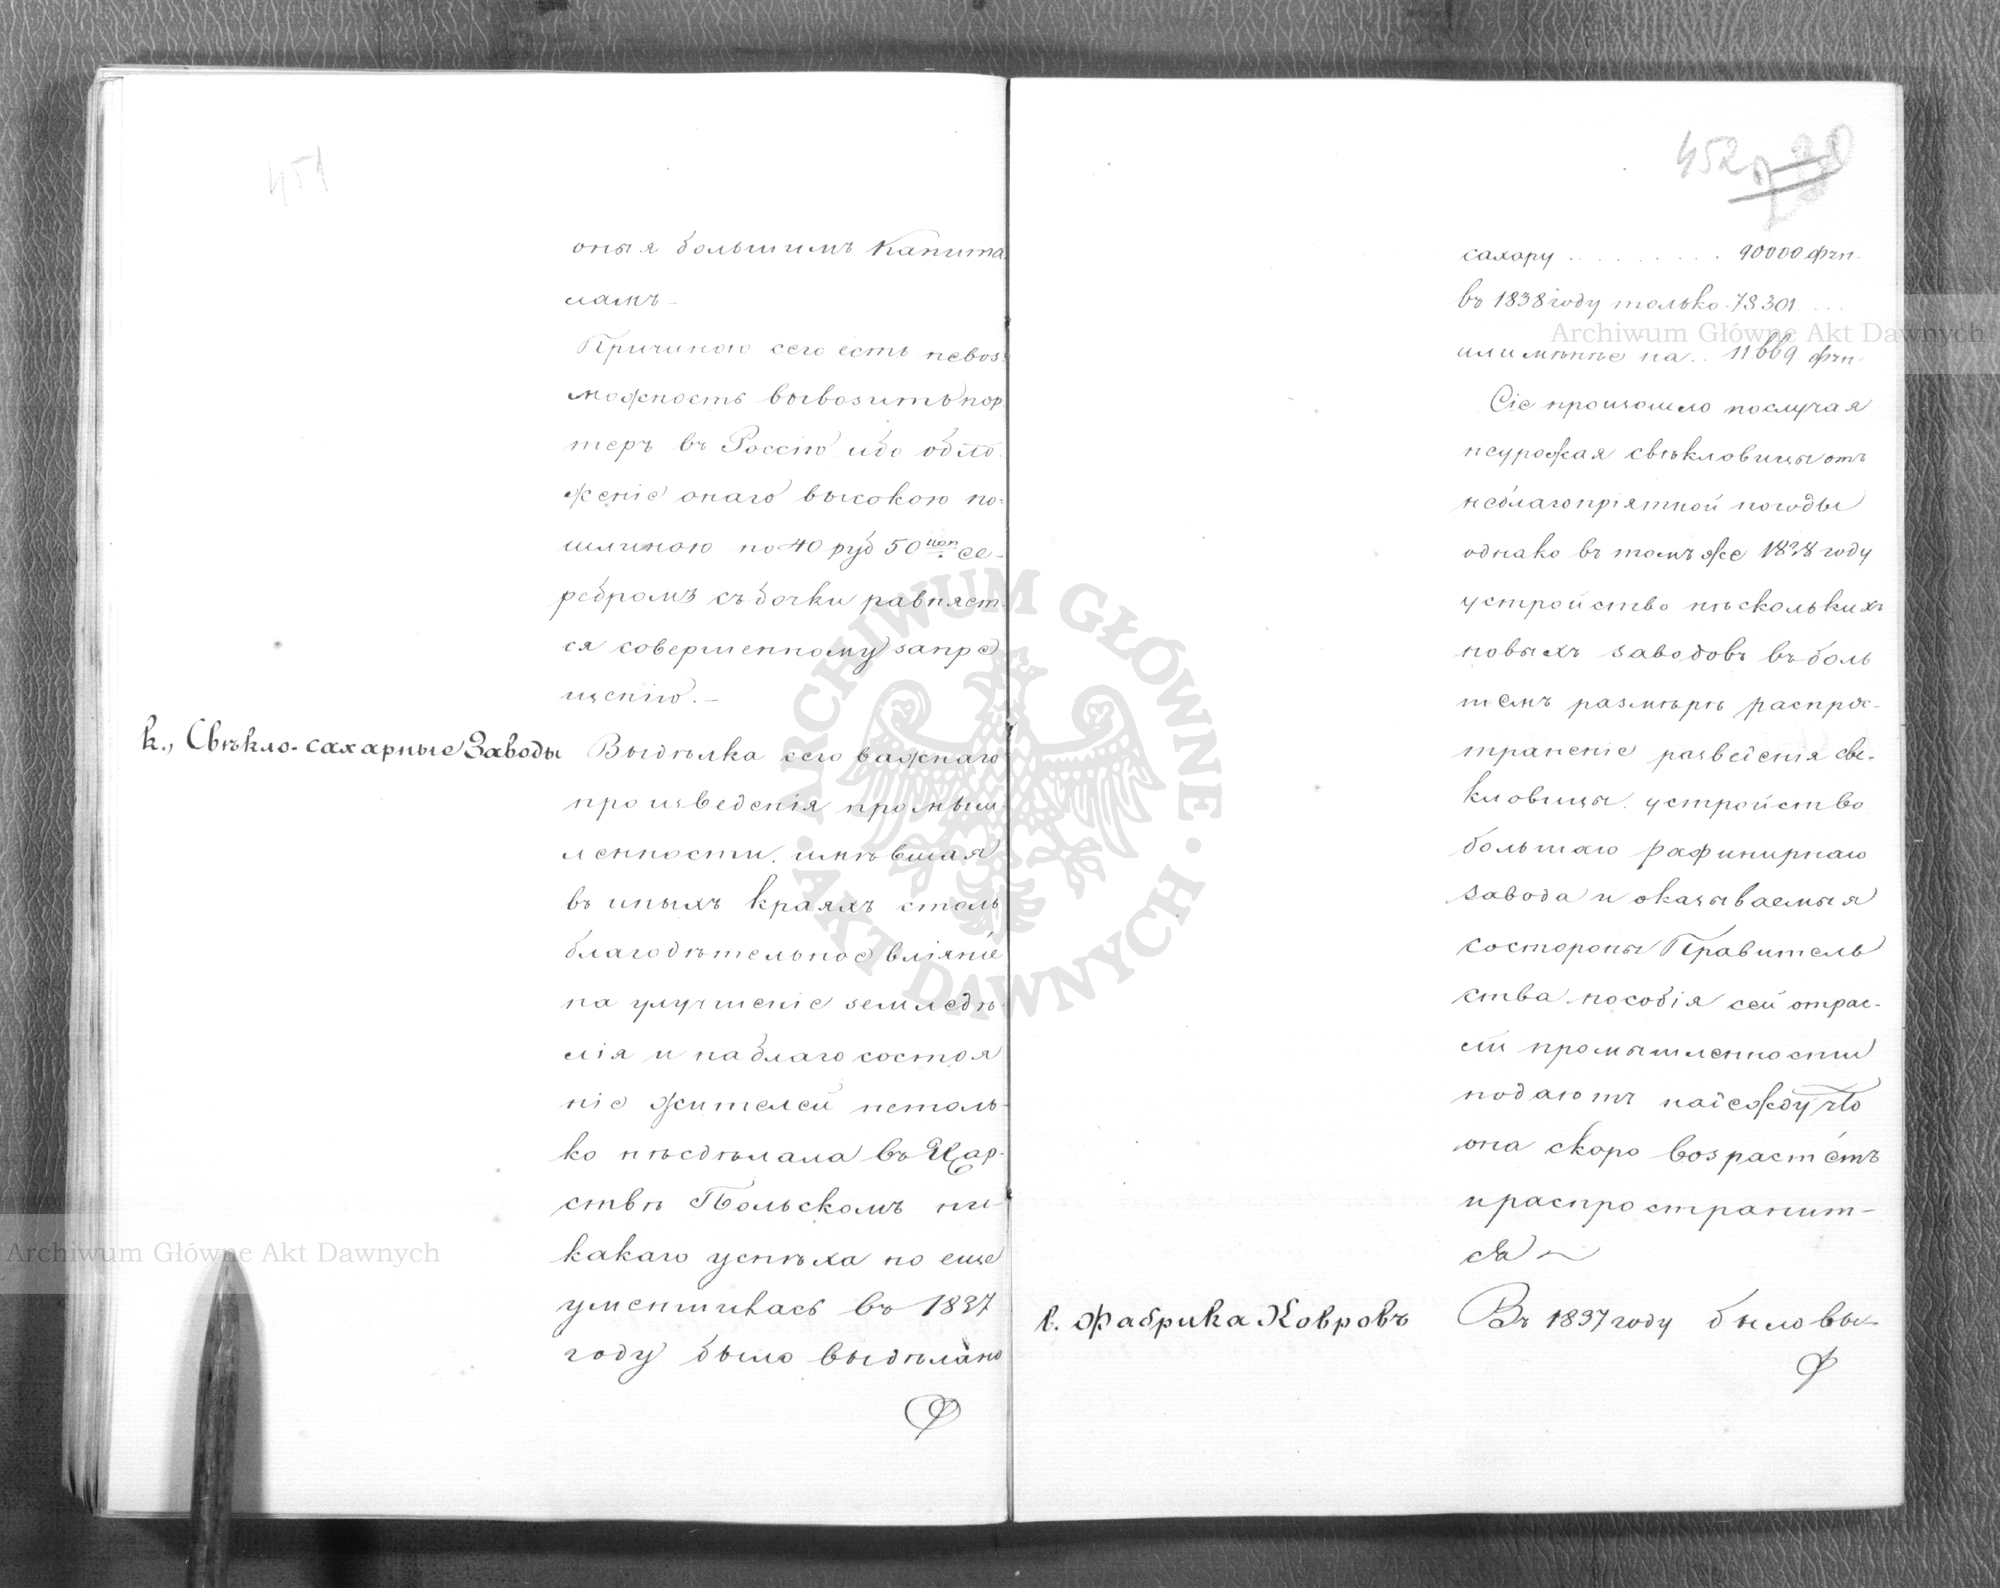 451
оныя большимъ капита
ламъ –
Причиною сего есть невоз=
можность вывозить пор
теръ въ Россію ибо обло
женіе онаго высокою по=
шлиною по 40 руб 50 коп се-
ребромъ съ бочки равняет
ся совершенному запре
щенію. –
k., Свѣкло-сахарные Заводы
Выдѣлка сего важнаго
произведенія промыш
ленности, имѣвшая
въ иныхъ краяхъ столь
благодѣтельное вліяніе
на улучшеніе земледѣ
лія и на благосостоя
ніе жителей нетоль-
ко несдѣлала въ Цар-
ствѣ Польскомъ ни-
какаго успѣха но еще
уменшилась въ 1837
году было выдѣлано
452
сахару . . . . . . . . . 90000 фун.
въ 1838 году только 78301 . . .
или менѣе на . . 11669 фун
Сіе произошло по случая
неурожая свѣкловицы отъ
неблагопріятной погоды
однако въ томъ же 1838 году
устройство нѣсколькихъ
новыхъ заводовъ въ боль
шемъ размѣрѣ распрос-
траненіе разведенія све-
кловицы, устройство
большаго рафинирнаго
завода и оказываемыя
состороны Правитель
ства пособія сей отрас-
ли промышленности
подаютъ надежду что
она скоро возрастётъ
и распространит-
ся
l. Фабрика Ковровъ
Въ 1837 году было вы-
Archiwum Główne Akt Dawnych
Archiwum Główne Akt Dawnych
ARCHIWUM GŁÓWNE AKT DAWNYCH